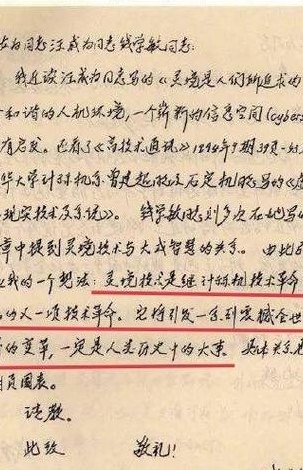 为同志汪成为同志钱学敏同志:
我近读汪成为同志写的《灵境是人们所追求的
和谐的人机环境,一个崭新的信息空间(cybers
有启发。还看了《高技术通讯》1994年9期
华大学计算机系曾建超
现实技术及系统》。钱学敏同志则多次在她写
章中提到灵境技术与大成智慧的关系。由此
我的一个想法:灵境技术是继计算机技术革命
的又一项技术革命。它将引发一系列震撼全世
的变革,一定是人类历史中的大事。
图表。
请教。
此致 敬礼!